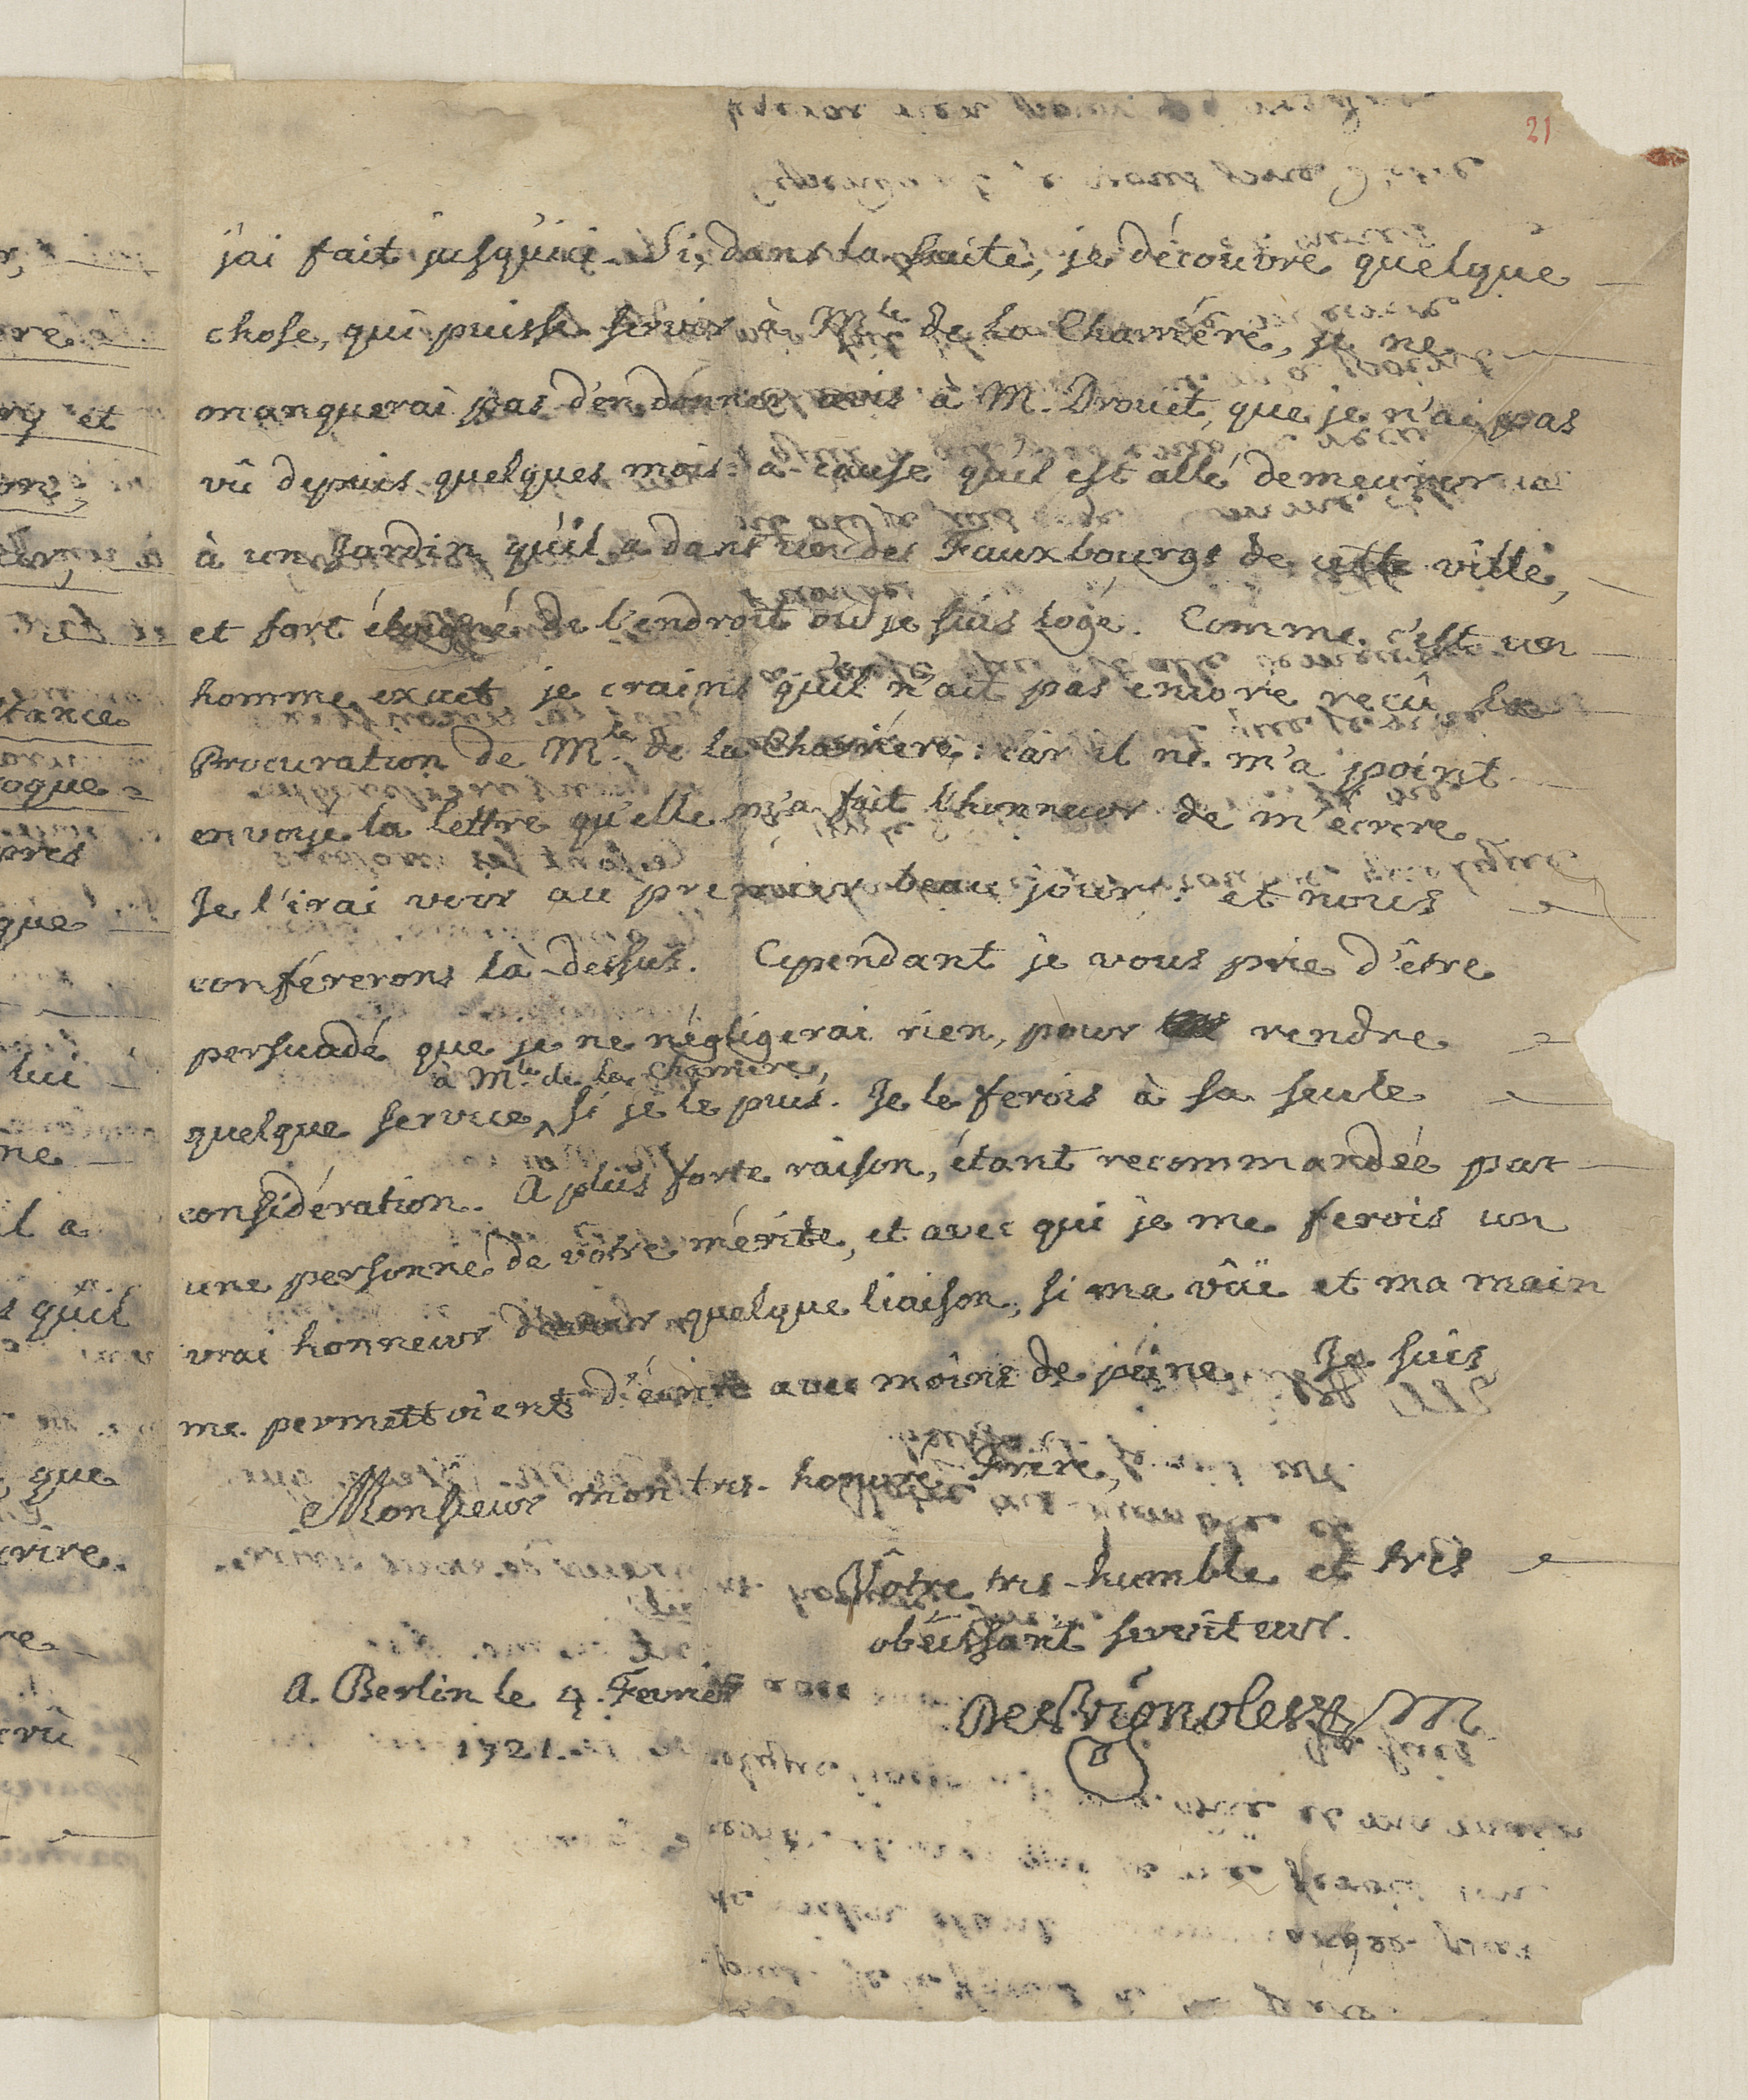 21
j'ai fait jusqu'ici. Si, dans la suite, je découvre quelque
chose, qui puisse servir à Mle de la Charriére, je ne
manquerai pas d'en donner avis à M. Drouet, que je n'ai pas
vû depuis quelques mois à-cause qu'il est allé demeurer
à un Jardin qu'il a dans un des Fauxbourgs de cette ville,
et fort éloigné de l'endroit où je suis logé. Comme c'est un
homme exact je crains qu'il n'ait pas encore reçû la
Procuration de Mle de la Charriére: car il ne m'a point
envoyé la lettre qu'elle m'a fait l'honneur de m'écrire
Je l'irai voir au premier beau jour: et nous
conférerons là-dessus. Cependant je vous prie d'être
persuadé que je ne négligerai rien, pour rendre
à Mle de la Charriere,
quelque service ^ si je le puis. Je le ferois à sa seule
considération. A plus forte raison, étant recommandée par
une personne de votre mérite, et avec qui je me ferois un
vrai honneur d'avoir quelque liaison, si ma vûë et ma main
me permettoient d'écrire avec moins de peine. Je suis
Monsieur mon tres-honoré Frére,
Vôtre tres-humble et tres
obéissant serviteur.
A Berlin le 4. Fevrier
DesVignoles
1721.
r,
re
et
on,
tance
oque
pres
que
lui
ne
il a
s qu'il
que
crire.
re
crû